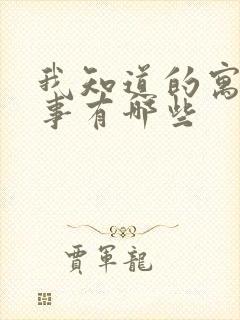 我知道的寓
事有哪些
賈軍龍